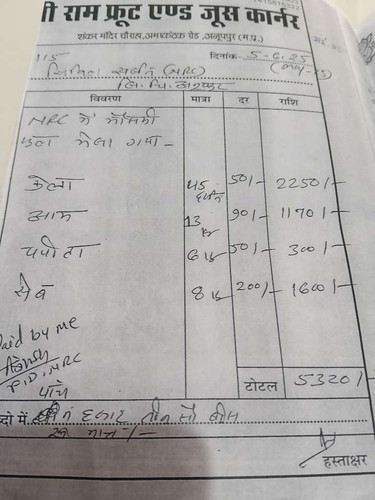 ी राम फ्रूट एण्ड जूस कार्नर
शंकर मंदिर चौराहा, अमरकंटक रोड, अनूपपुर (म.प्र.)
115 दिनांक 5-6-25
सिविल सर्जन (NRC) (मई-25)
विवरण मात्रा दर राशि
NRC में मौसमी
फल भेजा गया-
केला 45 दर्जन 50/- 2250/-
आम 13 kg 90/- 1170/-
पपीता 6 kg 50/- 300/-
सेब 8 kg 200/- 1600/-
aid by me
F.D. NRC
टोटल 5320/-
पांच
ब्दो में हजार तीन सौ बीस
रु मात्र/-
हस्ताक्षर